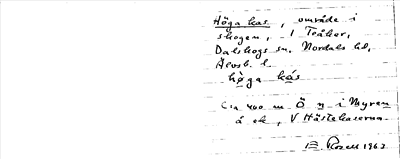 Höga kas, område i
skogen, i Teåker,
Dalskogs sn. Nordals hd,
Älvsb. l.
höga kás
Ca 400 m Ö n i Myren
å ek, V Hästekaserna
E. Rosell 1963